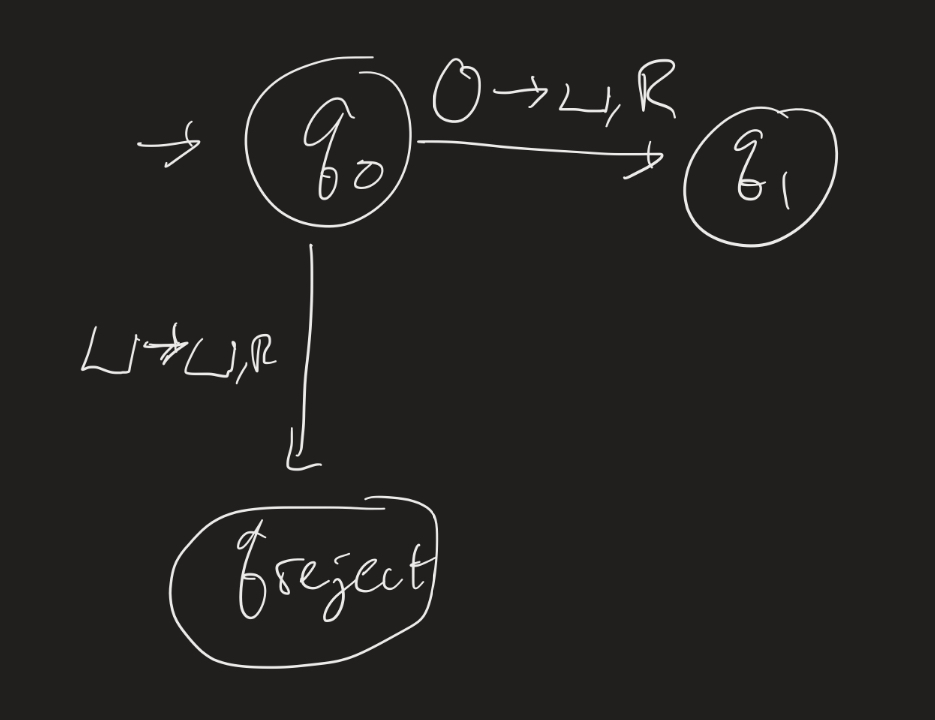 → q₀ 0→⊔, R q₁
⊔→⊔, R
qreject